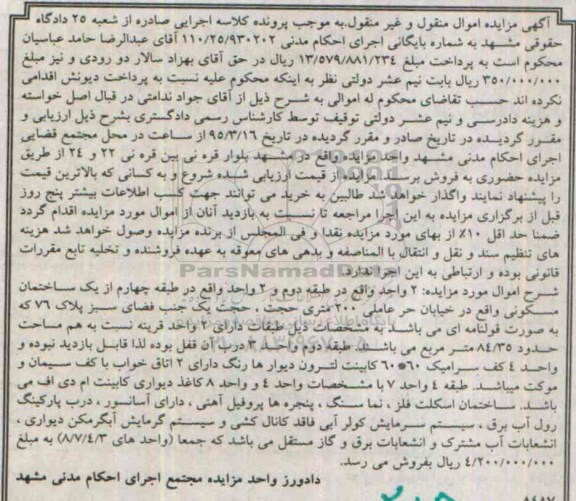 آگهی مزایده اموال منقول و غیر منقول.به موجب پرونده کلاسه اجرایی صادره از شعبه ۲۵ دادگاه
حقوقی مشهد به شماره بایگانی اجرای احکام مدنی ۱۱۰/۲۵/۹۳۰۲۰۲ آقای عبدالرضا حامد عباسیان
محکوم است به پرداخت مبلغ ۱۳/۵۷۹/۸۸۱/۲۳۴ ریال در حق آقای بهزاد سالار دو رودی و نیز مبلغ
۳۵۰/۰۰۰/۰۰۰ ریال بابت نیم عشر دولتی نظر به اینکه محکوم علیه نسبت به پرداخت دیونش اقدامی
نکرده اند حسب تقاضای محکوم له اموالی به شرح ذیل از آقای جواد ندامتی در قبال اصل خواسته
و هزینه دادرسی و نیم عشر دولتی توقیف توسط کارشناس رسمی دادگستری بشرح ذیل ارزیابی و
مقرر گردیده در تاریخ صادر و مقرر گردیده در تاریخ ۹۵/۳/۱۶ از ساعت در محل مجتمع قضایی
اجرای احکام مدنی مشهد واحد مزایده واقع در مشهد بلوار قره نی بین قره نی ۲۲ و ۲۴ از طریق
مزایده حضوری به فروش برسد مزایده از قیمت ارزیابی شده شروع و به کسانی که بالاترین قیمت
را پیشنهاد نمایند واگذار خواهد شد طالبین به خرید می توانند جهت کسب اطلاعات بیشتر پنج روز
قبل از برگزاری مزایده به این اجرا مراجعه تا نسبت به بازدید آنان از اموال مورد مزایده اقدام گردد
ضمنا حد اقل ۱۰٪ از بهای مورد مزایده نقدا و فی المجلس از برنده مزایده وصول خواهد شد هزینه
های تنظیم سند و نقل و انتقال با المناصفه و بدهی های معوقه به عهده فروشنده و تخلیه تابع مقررات
قانونی بوده و ارتباطی به این اجرا ندارد.
شرح اموال مورد مزایده: ۲ واحد واقع در طبقه دوم و ۲ واحد واقع در طبقه چهارم از یک ساختمان
مسکونی واقع در خیابان حر عاملی ۲۰ متری حجت، حجت یک جنب فضای سبز پلاک ۷۶ که
به صورت قولنامه ای می باشد. به مشخصات ذیل طبقات دارای ۲ واحد قرینه نسبت به هم مساحت
حدود ۸۴/۳۵ متر مربع می باشند. طبقه دوم واحد ۳ درب آن قفل بوده لذا قابل بازدید نبوده و
واحد ۴ کف سرامیک ۶۰*۶۰ کابینت لترون دیوار ها رنگ دارای ۲ اتاق خواب با کف سیمان و
موکت میباشد. طبقه ۴ واحد ۷ با مشخصات واحد ۴ و واحد ۸ کاغذ دیواری کابینت ام دی اف می
باشد. ساختمان اسکلت فلز، نما سنگ، پنجره ها پروفیل آهنی، دارای آسانسور، درب پارکینگ
رول آب برق، سیستم سرمایش کولر آبی فاقد کانال کشی و سیستم گرمایش آبگرمکن دیواری،
انشعابات آب مشترک و انشعابات برق و گاز مستقل می باشد که جمعا (واحد های ۸/۷/۴/۳) به مبلغ
۴/۲۰۰/۰۰۰/۰۰۰ ریال بفروش می رسد.
دادورز واحد مزایده مجتمع اجرای احکام مدنی مشهد
ParsNamadData